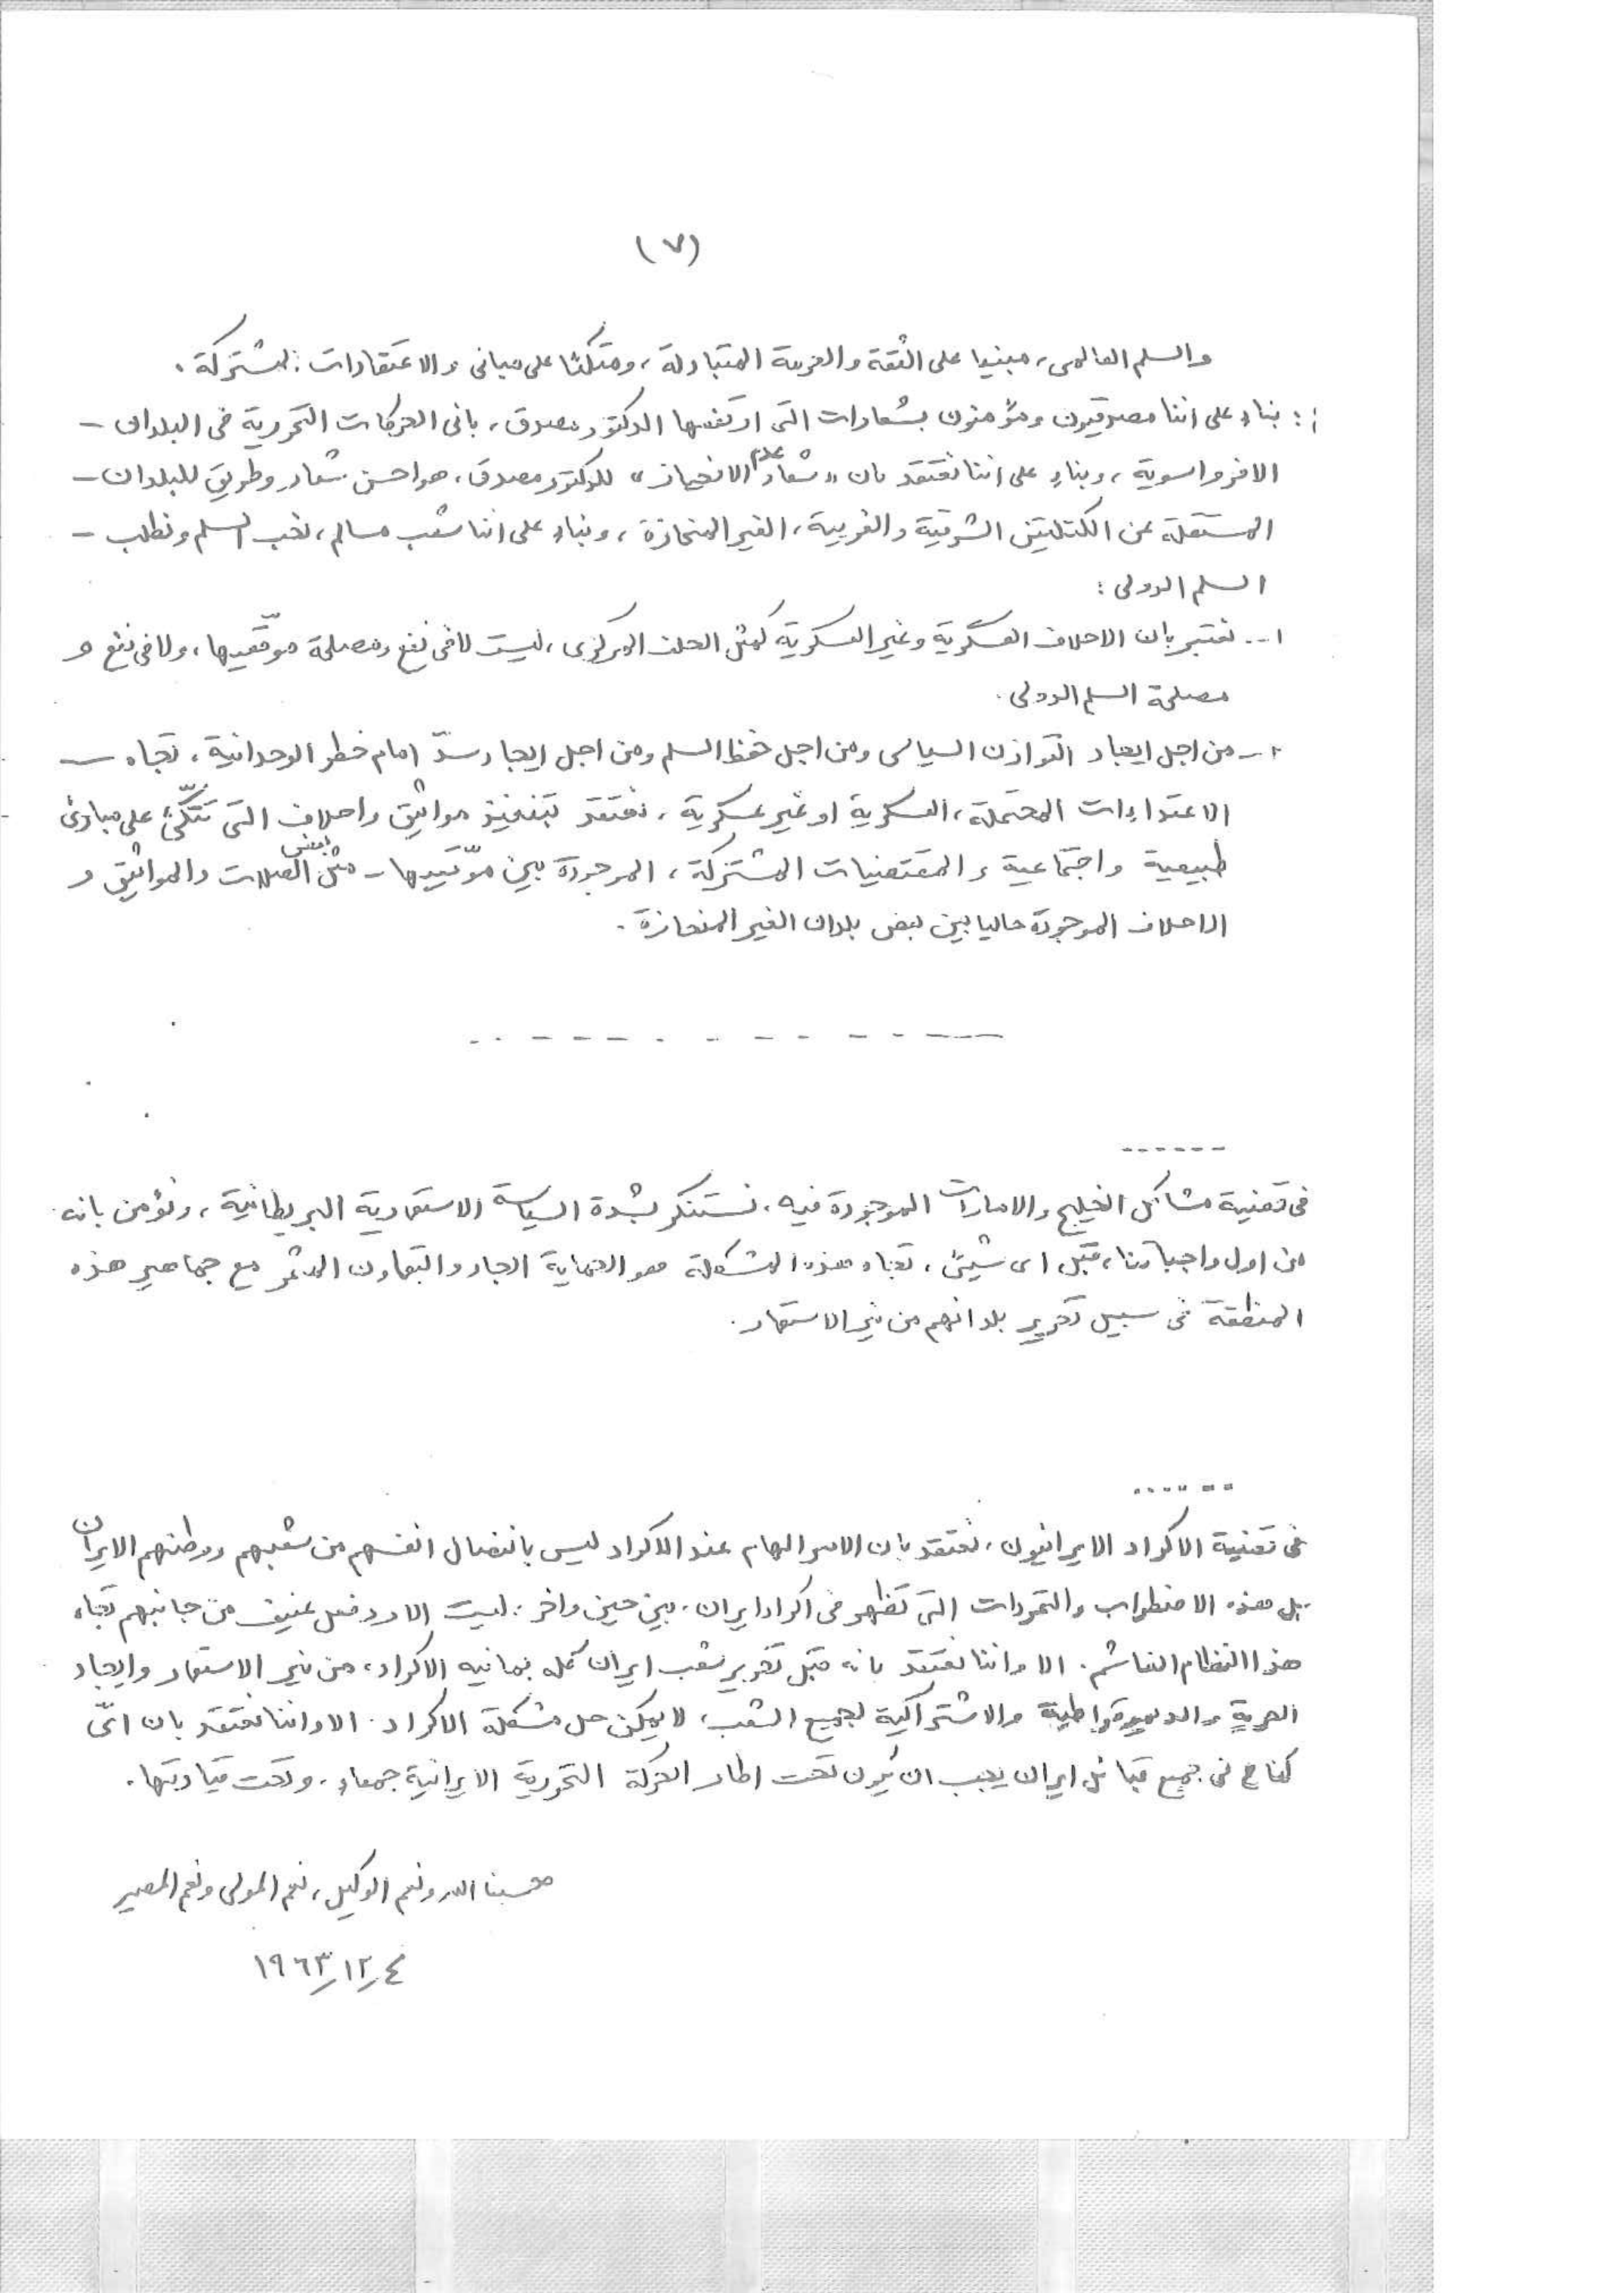 (٧)
والسلم العالمى، مبنيا على الثقة والحرمة المتبادلة، ومتكئا على مبانى والاعتقادات المشتركة.
: بناء على اننا مصدقيون ومؤمنون بشعارات التى ارتفعها الدكتور مصدق، بانى الحركات التحررية فى البلدان –
الافرواسوية، وبناء على اننا نعتقد بان «شعار عدم الانحياز» للدكتور مصدق، هو احسن شعار وطريق للبلدان –
المستقلة عن الكتلتين الشرقية والغربية، الغير المنحازة، وبناء على اننا شعب مسالم، نحب السلم ونطلب –
السلم الدولى:
١-- نعتبر بان الاحلاف العسكرية وغير العسكرية كمثل الحلف المركزى، ليست لا فى نفع ومصلحة موقّعيها، ولا فى نفع و
مصلحة السلم الدولى.
٢-- من اجل ايجاد التوازن السياسى ومن اجل حفظ السلم ومن اجل ايجاد سدّ امام خطر الوحدانية، تجاه –
الاعتداءات المحتملة، العسكرية او غير عسكرية، نعتقد بتنفيذ مواثيق واحلاف التى تتّكئ على مبادئ
طبيعية واجتماعية والمقتضيات المشتركة، الموجودة بين مؤيّديها – مثل بعض الصلات والمواثيق و
الاحلاف الموجودة حاليا بين بعض بلدان الغير المنحازة.
فى قضية مشاكل الخليج والامارات الموجودة فيه، نستنكر بشدة السياسة الاستعمارية البريطانية، ونؤمن بانه
من اول واجباتنا، قبل اى شيئ، تجاه هذه المشكلة هو الحماية الجاد والتعاون المثمر مع جماهير هذه
المنطقة فى سبيل تحرير بلدانهم من نير الاستعمار.
فى قضية الاكراد الايرانيون، نعتقد بان الامر الهام عند الاكراد ليس بانفصال انفسهم من شعبهم ووطنهم الايران
بل هذه الاضطراب والتمردات التى تظهر فى اكراد ايران، بين حين واخر، ليست الا رد فعل عنيف من جانبهم تجاه
هذا النظام الغاشم. الا واننا نعتقد بانه قبل تحرير شعب ايران كله بما فيه الاكراد، من نير الاستعمار وايجاد
الحرية والديموقراطية والاشتراكية لجميع الشعب، لا يمكن حل مشكلة الاكراد. الا واننا نعتقد بان اىّ
كفاح فى جميع قبائل ايران يجب ان يكون تحت اطار الحركة التحررية الايرانية جمعاء، وتحت قيادتها.
حسبنا الله ونعم الوكيل، نعم المولى ونعم المصير
٤/١٢/١٩٦٣